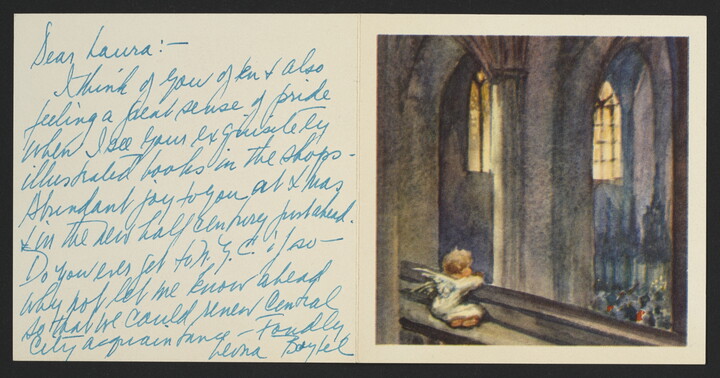 Dear Laura:—
I think of you often & also
feeling a great sense of pride
when I see your exquisitely
illustrated books in the shops-
Abundant joy to you at Xmas
& in the new half century just ahead.
Do you ever get to N.Y.C. if so—
why not let me know ahead
so that we could renew Central
City acquaintance — Fondly
Leona